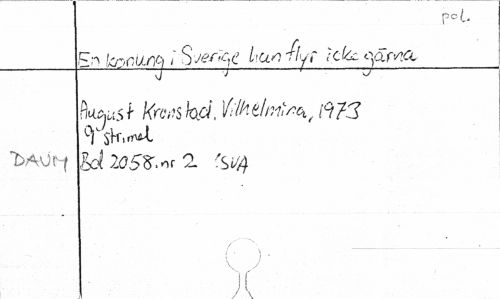 pol.
En konung i Sverige han flyr icke gärna
August Kronstad, Vilhelmina, 1973
9 strimel
DAUM Bd 2058.nr 2 SVA